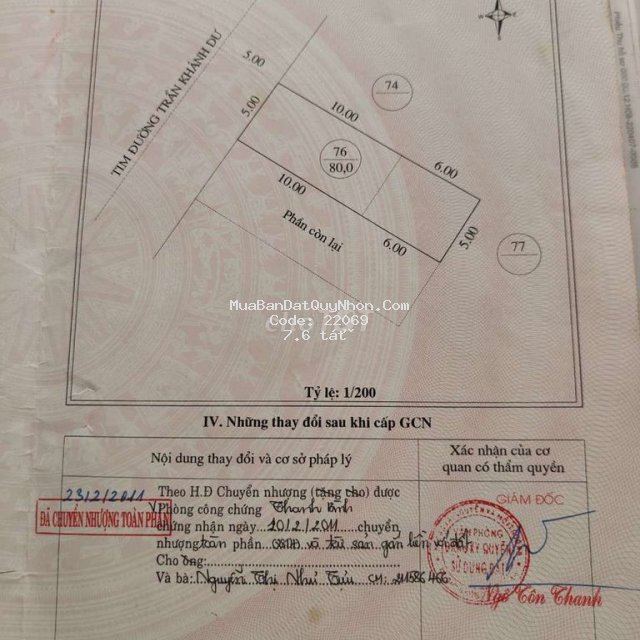 TIM ĐƯỜNG TRẦN KHÁNH DƯ
5.00
5.00
10.00
74
76
80,0
6.00
10.00
Phần còn lại
6.00
5.00
77
MuaBanDatQuyNhon.Com
Code: 22069
7.6 tất
Tỷ lệ: 1/200
IV. Những thay đổi sau khi cấp GCN
Nội dung thay đổi và cơ sở pháp lý
Xác nhận của cơ
quan có thẩm quyền
23/2/2011
Theo H.Đ Chuyển nhượng (tặng cho) được
GIÁM ĐỐC
Phòng công chứng Thanh Bình
ĐÃ CHUYỂN NHƯỢNG TOÀN PHẦN
chứng nhận ngày 20/2/2011 chuyển
VĂN PHÒNG
ĐĂNG KÝ QUYỀN
SỬ DỤNG ĐẤT
nhượng toàn phần QSDĐ và tài sản gắn liền với đất
Cho ông:
Và bà: Nguyễn Thị Như CM:
Ngô Tôn Thanh